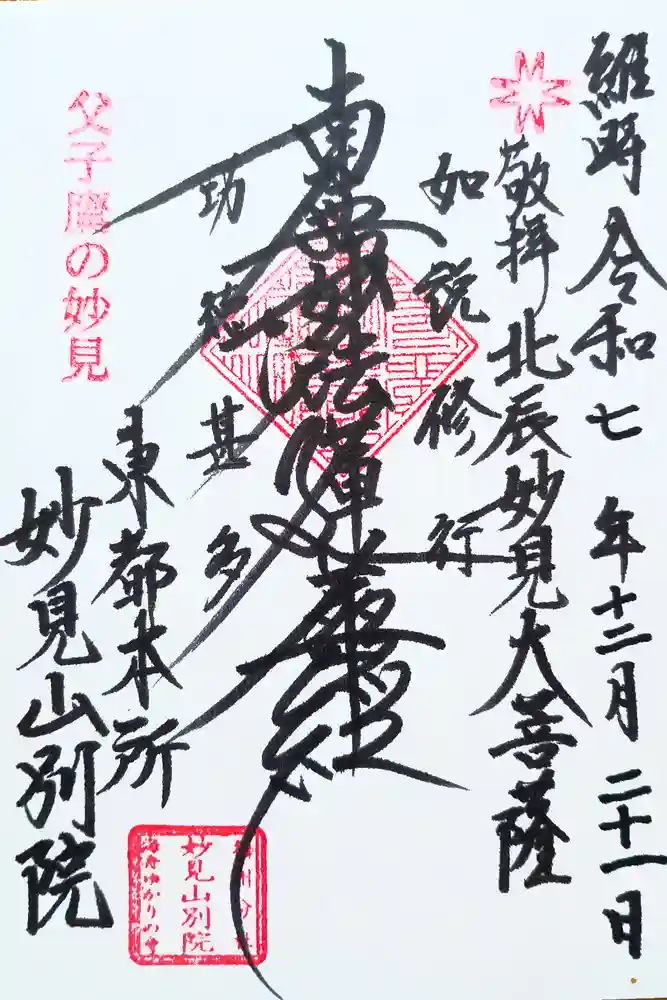 維時令和七年十二月二十一日
敬拝北辰妙見大菩薩
如説修行
南無妙法蓮華経
功徳甚多
東都本所
妙見山別院
父子鷹の妙見
妙見山別院